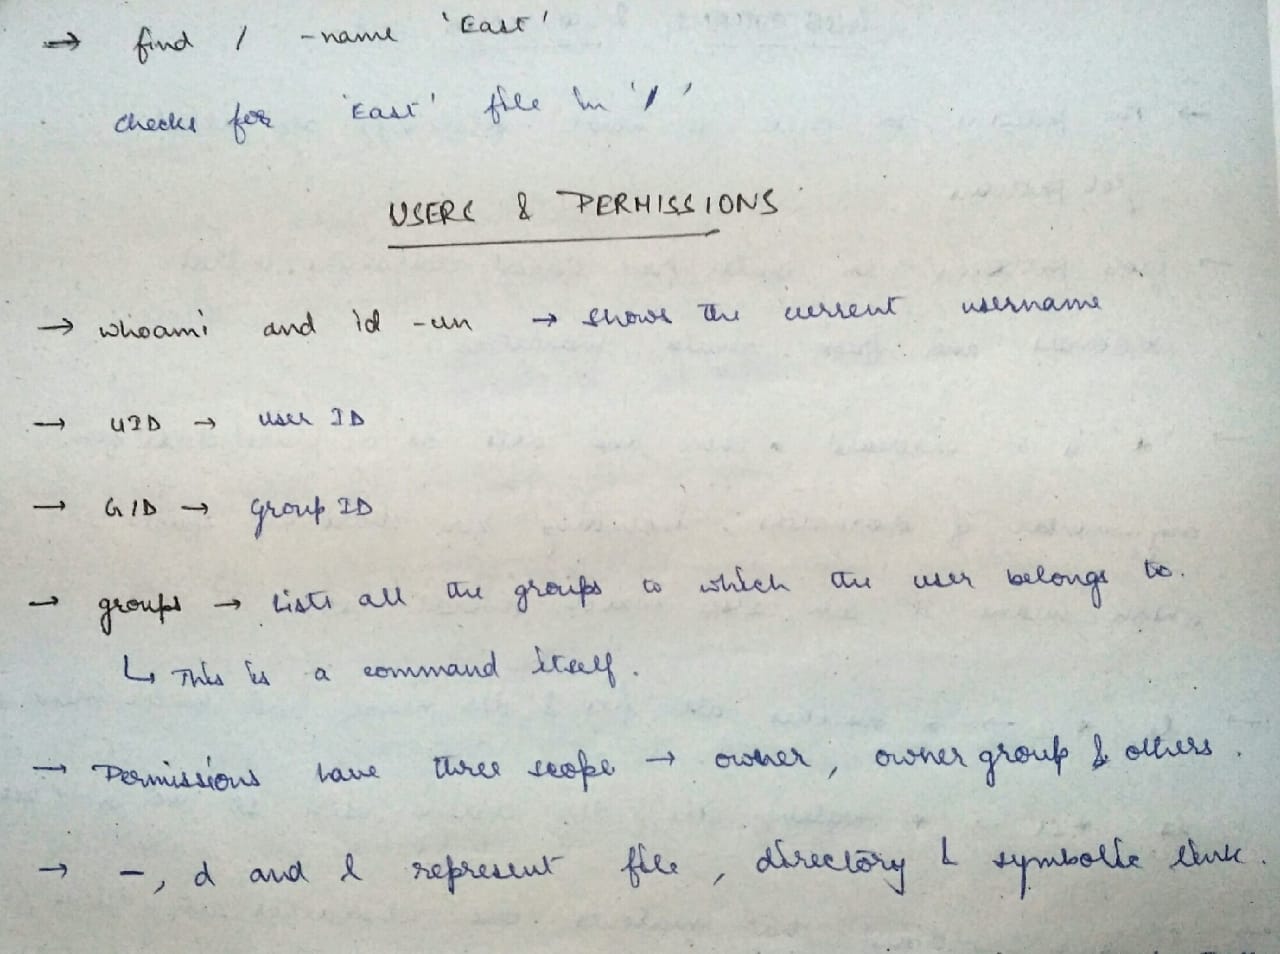 → find / -name 'East'
checks for 'East' file in '/'
USERS & PERMISSIONS
→ whoami and id -un → shows the current username
→ UID → user ID
→ GID → group ID
→ groups → Lists all the groups to which the user belongs to.
↳ This is a command itself.
→ Permissions have three scope → owner, owner group & others.
→ -, d and l represent file, directory & symbolic link.